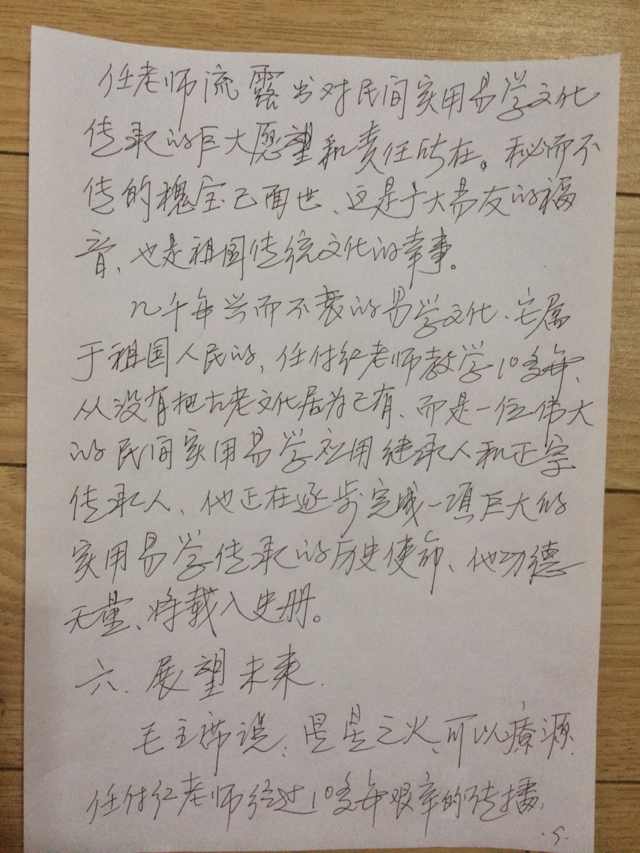 任老师流露出对民间实用易学文化
传承的巨大愿望和责任所在。秘而不
传的瑰宝已面世、这是广大易友的福
音、也是祖国传统文化的幸事。
几千年兴而不衰的易学文化、它属
于祖国人民的,任付红老师教学10多年、
从没有把古老文化居为己有、而是一位伟大
的民间实用易学应用继承人和正宗
传承人、他正在逐步完成一项巨大的
实用易学传承的历史使命、他功德
无量、将载入史册。
六.展望未来.
毛主席说、星星之火、可以燎源.
任付红老师经过10多年艰辛的传播,
.5.